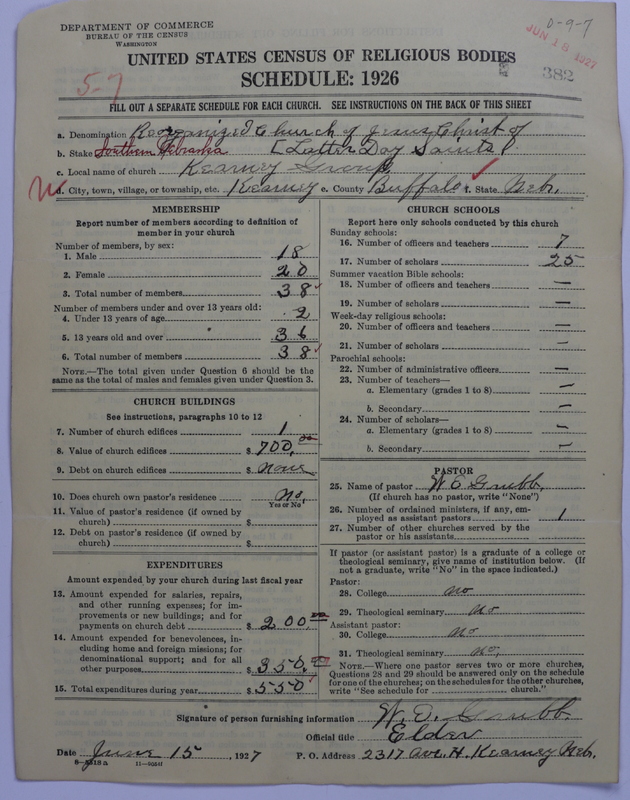 DEPARTMENT OF COMMERCE
BUREAU OF THE CENSUS
WASHINGTON
0-9-7
JUN 18 1927
382
UNITED STATES CENSUS OF RELIGIOUS BODIES
SCHEDULE: 1926
5-7
FILL OUT A SEPARATE SCHEDULE FOR EACH CHURCH. SEE INSTRUCTIONS ON THE BACK OF THIS SHEET
a. Denomination Reorganized Church of Jesus Christ of
b. Stake Southern Nebraska [Latter Day Saints]
c. Local name of church Kearney Group
d. City, town, village, or township, etc. Kearney e. County Buffalo f. State Nebr.
MEMBERSHIP
Report number of members according to definition of
member in your church
Number of members, by sex:
1. Male 18
2. Female 20
3. Total number of members 38
Number of members under and over 13 years old:
4. Under 13 years of age 2
5. 13 years old and over 36
6. Total number of members 38
NOTE.—The total given under Question 6 should be
the same as the total of males and females given under Question 3.
CHURCH BUILDINGS
See instructions, paragraphs 10 to 12
7. Number of church edifices 1
8. Value of church edifices $ 700.00
9. Debt on church edifices $ None
10. Does church own pastor's residence No.
Yes or No
11. Value of pastor's residence (if owned by
church) $
12. Debt on pastor's residence (if owned by
church) $
EXPENDITURES
Amount expended by your church during last fiscal year
13. Amount expended for salaries, repairs,
and other running expenses; for im-
provements or new buildings; and for
payments on church debt $ 200.00
14. Amount expended for benevolences, in-
cluding home and foreign missions; for
denominational support; and for all
other purposes $ 350.00
15. Total expenditures during year $ 550
CHURCH SCHOOLS
Report here only schools conducted by this church
Sunday schools:
16. Number of officers and teachers 7
17. Number of scholars 25
Summer vacation Bible schools:
18. Number of officers and teachers —
19. Number of scholars —
Week-day religious schools:
20. Number of officers and teachers —
21. Number of scholars —
Parochial schools:
22. Number of administrative officers —
23. Number of teachers—
a. Elementary (grades 1 to 8) —
b. Secondary —
24. Number of scholars—
a. Elementary (grades 1 to 8) —
b. Secondary —
PASTOR
25. Name of pastor W. E. Grubb.
(If church has no pastor, write "None")
26. Number of ordained ministers, if any, em-
ployed as assistant pastors 1
27. Number of other churches served by the
pastor or his assistants
If pastor (or assistant pastor) is a graduate of a college or
theological seminary, give name of institution below. (If
not a graduate, write "No" in the space indicated.)
Pastor:
28. College no
29. Theological seminary No
Assistant pastor:
30. College No
31. Theological seminary no.
NOTE.—Where one pastor serves two or more churches,
Questions 28 and 29 should be answered only on the schedule
for one of the churches; on the schedules for the other churches,
write "See schedule for church."
Signature of person furnishing information W. E. Grubb.
Official title Elder
Date June 15, 1927 P. O. Address 2317 Ave. H. Kearney Nebr.